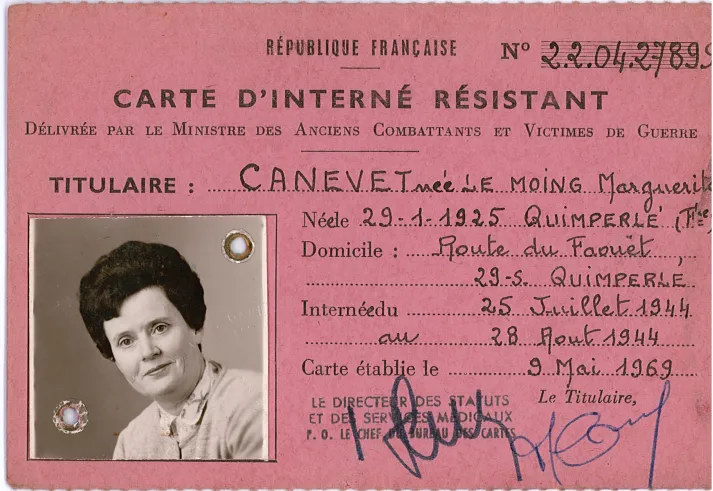 RÉPUBLIQUE FRANÇAISE
N° 22.04.27899
CARTE D'INTERNÉ RÉSISTANT
DÉLIVRÉE PAR LE MINISTRE DES ANCIENS COMBATTANTS ET VICTIMES DE GUERRE
TITULAIRE : CANEVET née LE MOING Marguerite
Née le 29-1-1925 QUIMPERLÉ (Fre)
Domicile : Route du Faouët
29-S. QUIMPERLE
Internée du 25 Juillet 1944
au 28 Aout 1944
Carte établie le 9 Mai 1969
LE DIRECTEUR DES STATUTS
ET DES SERVICES MÉDICAUX
P. O. LE CHEF DU BUREAU DES CARTES
Le Titulaire,